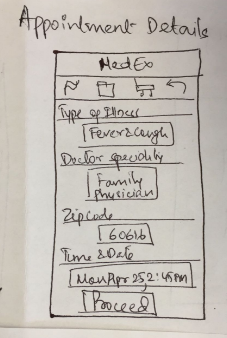 Appointment Details
MedEx
Type of Illness
Fever & Cough
Doctor speciality
Family
Physician
Zipcode
60616
Time & Date
Mon Apr 25 2:45PM
Proceed